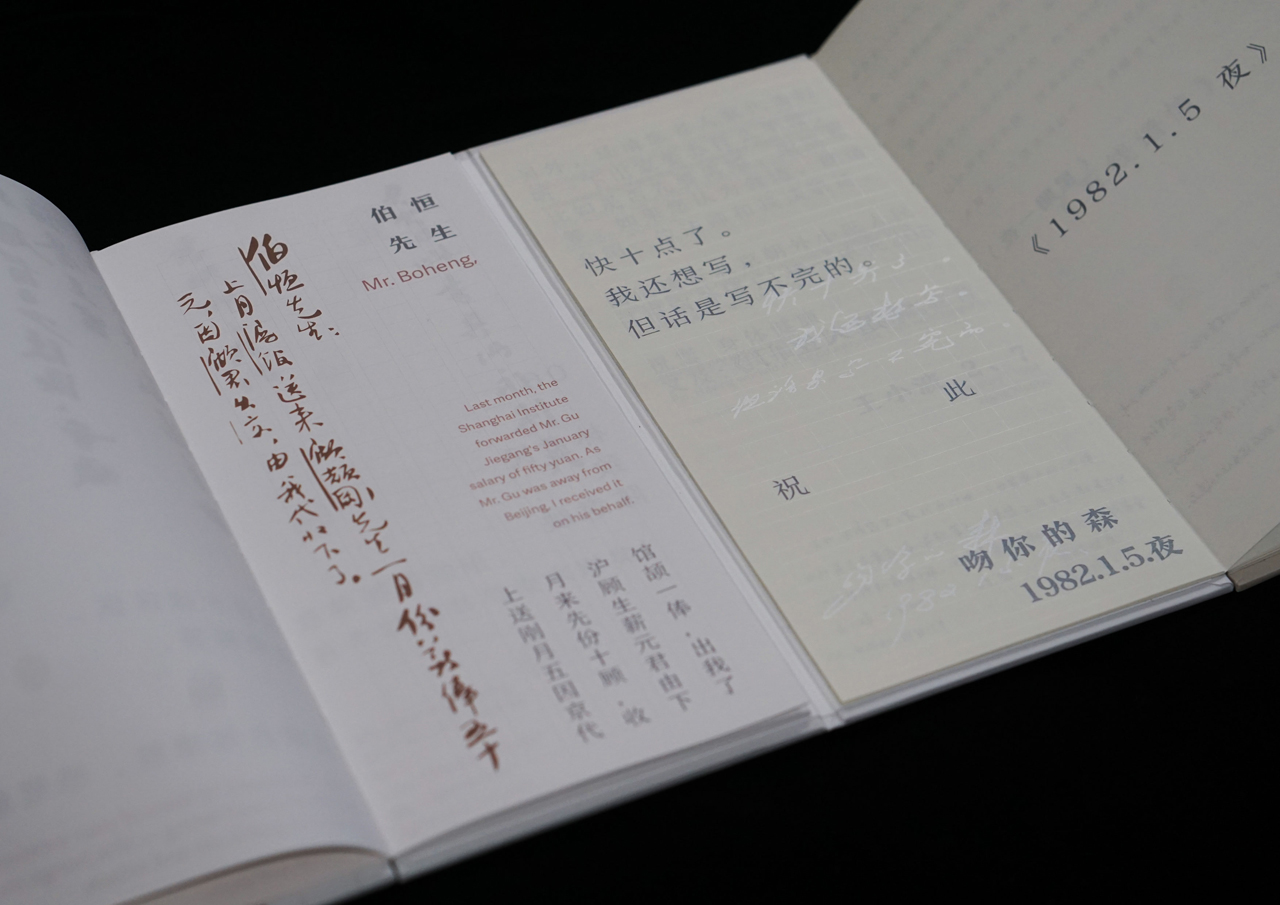 伯恒先生：
上月沪馆送来顾颉刚先生一月份薪俸五十
元，因顾君出京，由我代收下了。
伯恒
先生
Mr. Boheng,
Last month, the
Shanghai Institute
forwarded Mr. Gu
Jiegang's January
salary of fifty yuan. As
Mr. Gu was away from
Beijing, I received it
on his behalf.
上月沪馆
送来顾颉
刚先生一
月份薪俸
五十元，
因顾君出
京，由我
代收下了
快十点了。
我还想写，
但话是写不完的。
此
祝
吻你的森
1982.1.5.夜
《1982.1.5 夜》